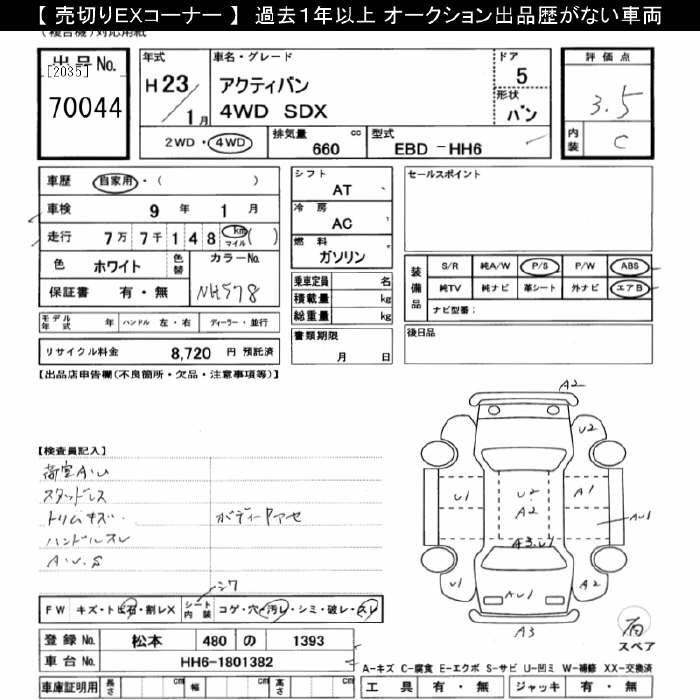 【 売切りEXコーナー 】 過去1年以上 オークション出品歴がない車両
(複合機)対応用紙
出品No.
[2035]
70044
年式
H23/1月
車名・グレード
アクティバン
4WD SDX
ドア
5
形状
バン
2WD・4WD
排気量
660 cc
型式
EBD-HH6
評価点
3.5
内装
C
車歴 自家用・( )
車検 9年 1月
走行 7万7千148 km マイル ( )
色 ホワイト 色替 カラーNo. NH578
保証書 有・無
モデル年式 年 ハンドル 左・右 ディーラー・並行
リサイクル料金 8,720 円 預託済
シフト
AT
冷房
AC
燃料
ガソリン
乗車定員 名
積載量 kg
総重量 kg
書類期限
月 日
セールスポイント
装備品
S/R 純A/W P/S P/W ABS
純TV 純ナビ 革シート 外ナビ エアB
ナビ型番:
後日品
【出品店申告欄(不良箇所・欠品・注意事項等)】
【検査員記入】
荷室A・U
スタッドレス
トリムキズ
ハンドルスレ
A・U・S
ボディーアセ
A2
U2
U1
U2
A2
A1
AU1
A3・U1
U1
AU1
A2
A3
スペア
シワ
FW キズ・ト出石・割レX
シート内装 コゲ・穴・汚レ・シミ・破レ・スレ
登録No. 松本 480 の 1393
車台No. HH6-1801382
車庫証明用 長さ cm 幅 cm 高さ cm
A-キズ C-腐食 E-エクボ S-サビ U-凹ミ W-補修 XX-交換済
工具 有・無 ジャッキ 有・無